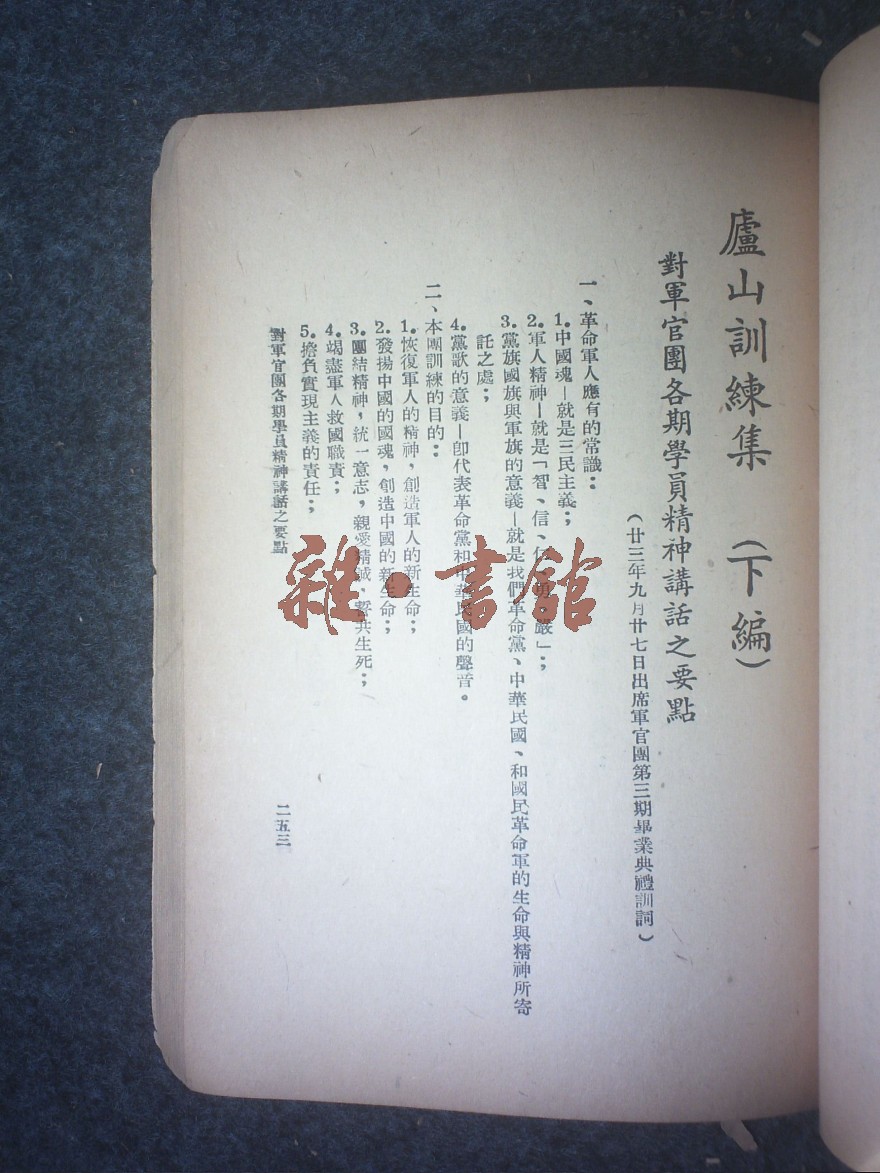 廬山訓練集　(下編)
對軍官團各期學員精神講話之要點
(廿三年九月廿七日出席軍官團第三期畢業典禮訓詞)
一、革命軍人應有的常識：
1.中國魂—就是三民主義；
2.軍人精神—就是「智、信、仁、勇、嚴」；
3.黨旗國旗與軍旗的意義—就是我們革命黨、中華民國、和國民革命軍的生命與精神所寄
託之處；
4.黨歌的意義—卽代表革命黨和中華民國的聲音。
二、本團訓練的目的：
1.恢復軍人的精神，創造軍人的新生命；
2.發揚中國的國魂，創造中國的新生命；
3.團結精神，統一意志，親愛精誠，誓共生死；
4.竭盡軍人救國職責；
5.擔負實現主義的責任；
對軍官團各期學員精神講話之要點
二五三
雜·書館